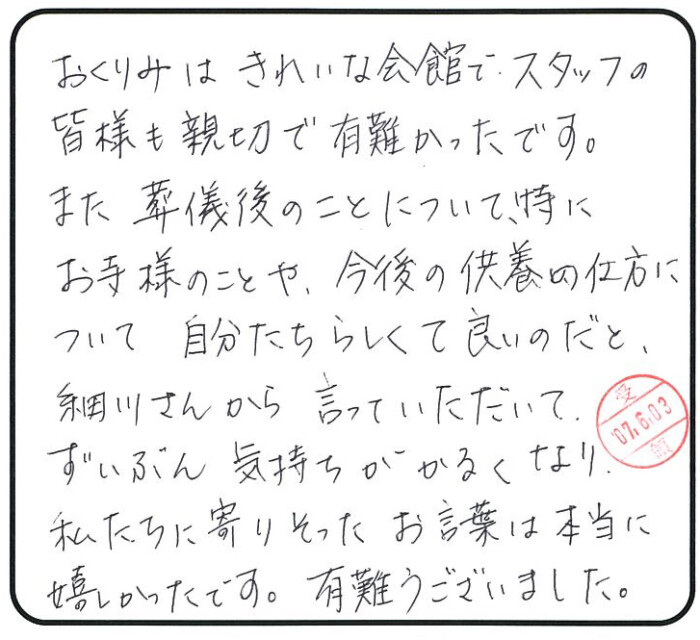 おくりみは きれいな会館で、スタッフの
皆様も親切で有難かったです。
また 葬儀後のことについて、特に
お寺様のことや、今後の供養の仕方に
ついて 自分たちらしくて良いのだと、
細川さんから 言っていただいて、
ずいぶん 気持ちが かるく なり、
私たちに寄りそった お言葉は本当に
嬉しかったです。有難うございました。
受
'07.6.03